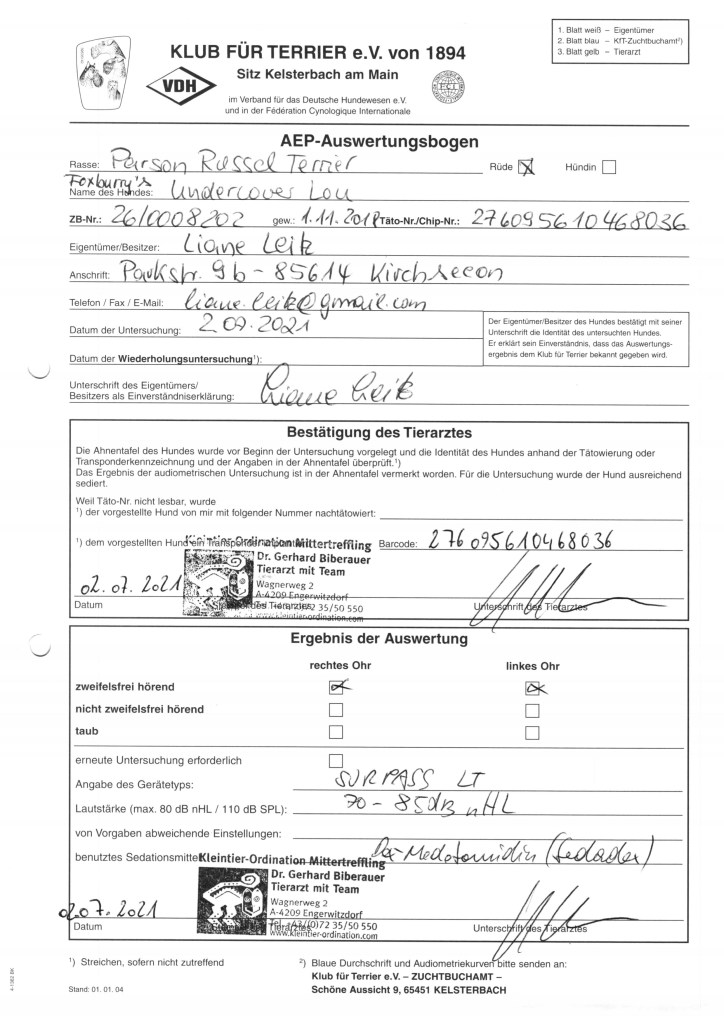 1. Blatt weiß – Eigentümer
2. Blatt blau – KfT-Zuchtbuchamt²)
3. Blatt gelb – Tierarzt
KLUB FÜR TERRIER e.V. von 1894
Sitz Kelsterbach am Main
VDH
FCI
im Verband für das Deutsche Hundewesen e.V.
und in der Fédération Cynologique Internationale
AEP-Auswertungsbogen
Rasse: Parson Russel Terrier Rüde Hündin
Foxburry's
Name des Hundes: Undercover Lou
ZB-Nr.: 26/0008202 gew.: 1.11.2018 Täto-Nr./Chip-Nr.: 276095610468036
Eigentümer/Besitzer: Liane Leik
Anschrift: Parkstr. 9b - 85614 Kirchseeon
Telefon / Fax / E-Mail: liane.leik@gmail.com
Datum der Untersuchung: 2.07.2021
Der Eigentümer/Besitzer des Hundes bestätigt mit seiner
Unterschrift die Identität des untersuchten Hundes.
Er erklärt sein Einverständnis, dass das Auswertungs-
ergebnis dem Klub für Terrier bekannt gegeben wird.
Datum der Wiederholungsuntersuchung¹):
Unterschrift des Eigentümers/
Besitzers als Einverständniserklärung: Liane Leik
Bestätigung des Tierarztes
Die Ahnentafel des Hundes wurde vor Beginn der Untersuchung vorgelegt und die Identität des Hundes anhand der Tätowierung oder
Transponderkennzeichnung und der Angaben in der Ahnentafel überprüft.¹)
Das Ergebnis der audiometrischen Untersuchung ist in der Ahnentafel vermerkt worden. Für die Untersuchung wurde der Hund ausreichend
sediert.
Weil Täto-Nr. nicht lesbar, wurde
¹) der vorgestellte Hund von mir mit folgender Nummer nachtätowiert:
¹) dem vorgestellten Hund ein Transponder Barcode: 276095610468036
Kleintier-Ordination Mittertreffling
Dr. Gerhard Biberauer
Tierarzt mit Team
Wagnerweg 2
A-4209 Engerwitzdorf
72 35/50 550
www.kleintier-ordination.com
02.07.2021
Datum des Tierarztes Unterschrift des Tierarztes
Ergebnis der Auswertung
rechtes Ohr linkes Ohr
zweifelsfrei hörend
nicht zweifelsfrei hörend
taub
erneute Untersuchung erforderlich
Angabe des Gerätetyps: SURPASS LT
Lautstärke (max. 80 dB nHL / 110 dB SPL): 70 - 85dB nHL
von Vorgaben abweichende Einstellungen:
benutztes Sedationsmittel Dex-Medetomidin (Sedadex)
Kleintier-Ordination Mittertreffling
Dr. Gerhard Biberauer
Tierarzt mit Team
Wagnerweg 2
A-4209 Engerwitzdorf
Tel. +43/(0)72 35/50 550
www.kleintier-ordination.com
02.07.2021
Datum Tierarztes Unterschrift des Tierarztes
¹) Streichen, sofern nicht zutreffend
²) Blaue Durchschrift und Audiometriekurven bitte senden an:
Klub für Terrier e.V. – ZUCHTBUCHAMT –
Schöne Aussicht 9, 65451 KELSTERBACH
Stand: 01. 01. 04